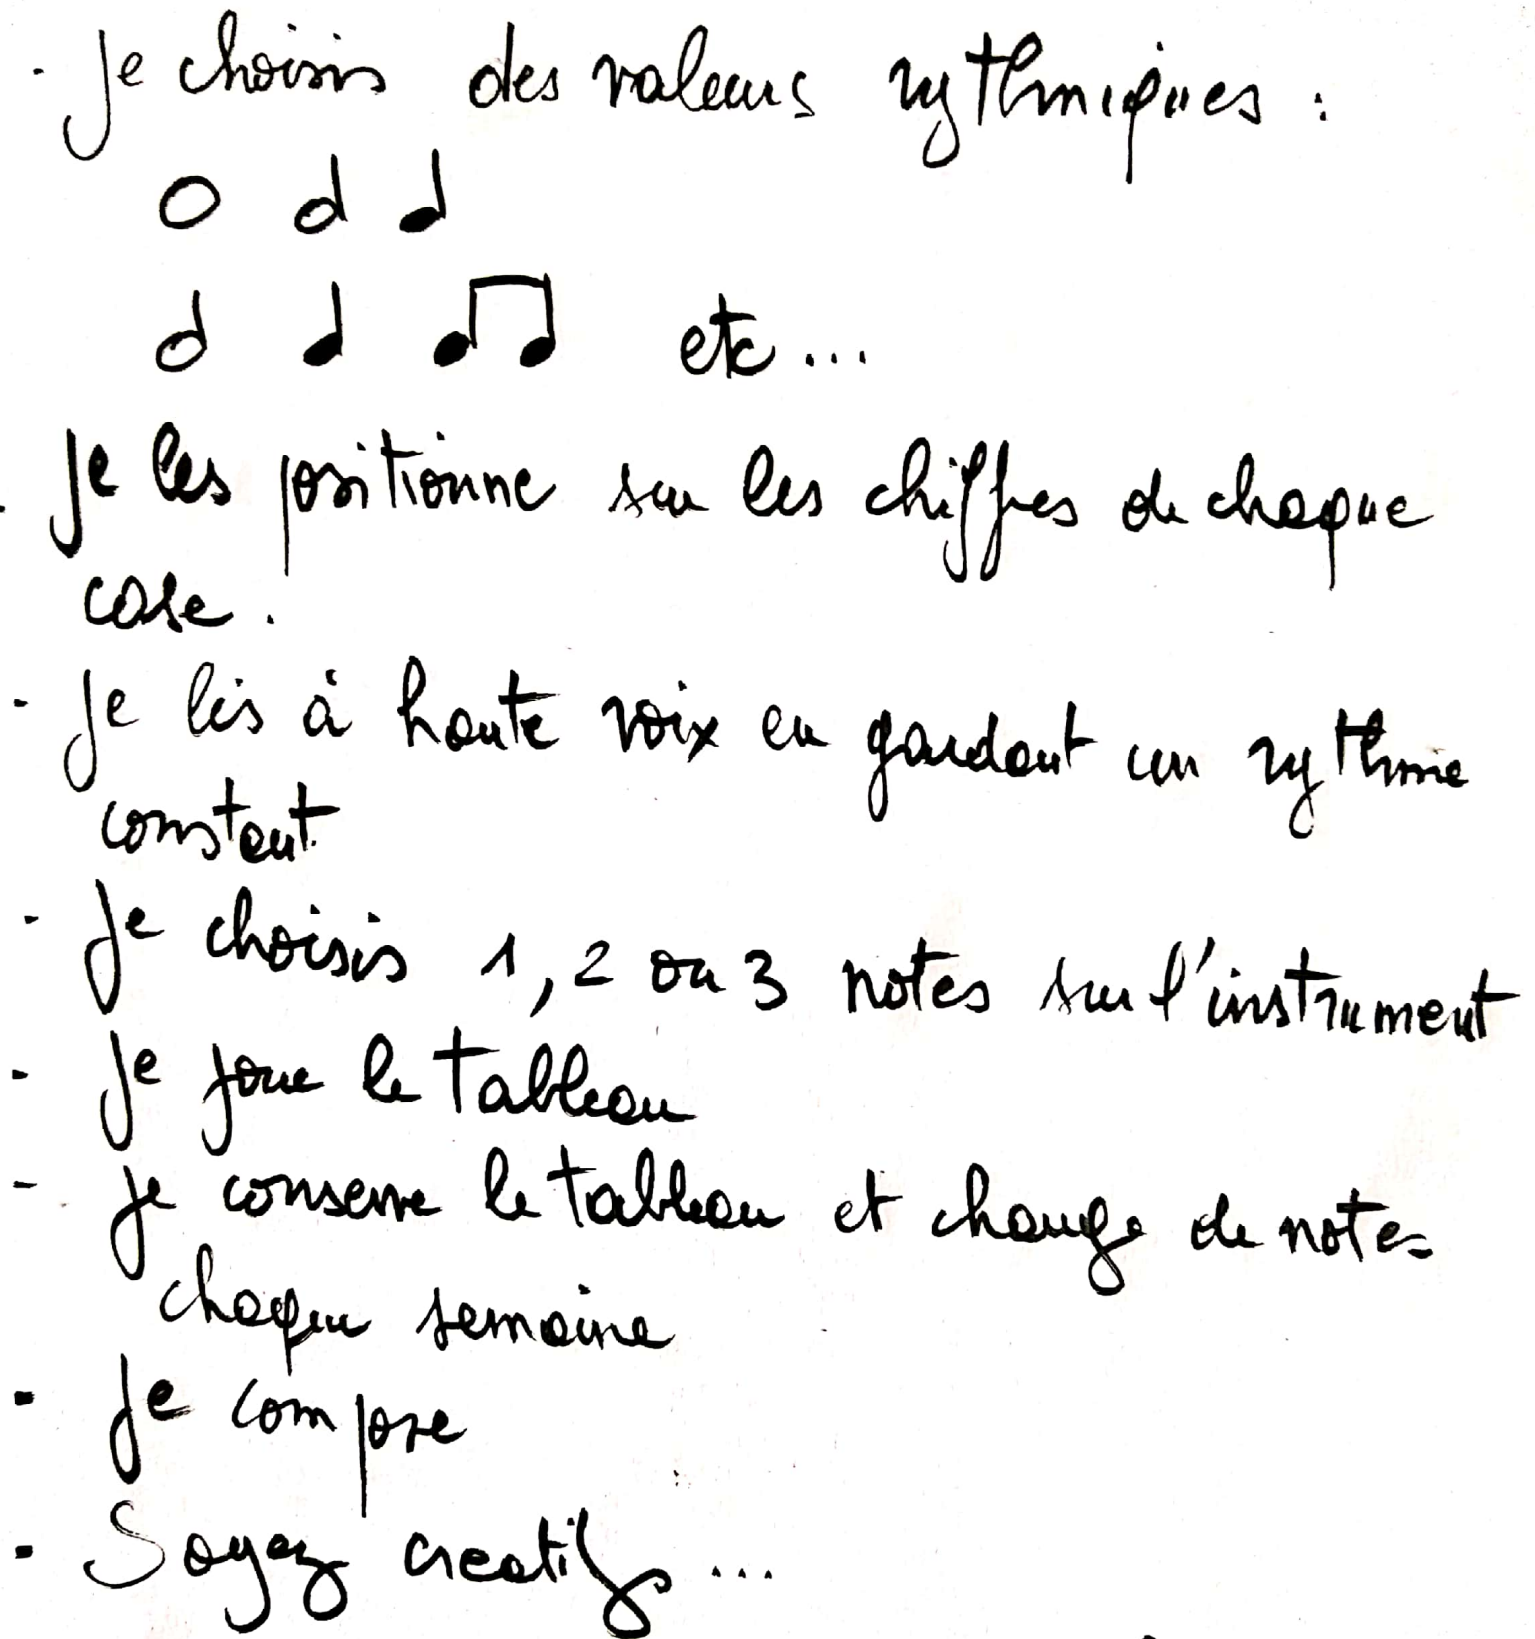 - Je choisis des valeurs rythmiques :
𝅝 𝅗𝅥 ♩
𝅗𝅥 ♩ ♫ etc...
. Je les positionne sur les chiffres de chaque
case.
- Je lis à haute voix en gardant un rythme
constant.
- Je choisis 1, 2 ou 3 notes sur l'instrument
- Je joue le tableau
- je conserve le tableau et change de notes
chaque semaine
- Je compose
- Soyez creatifs...